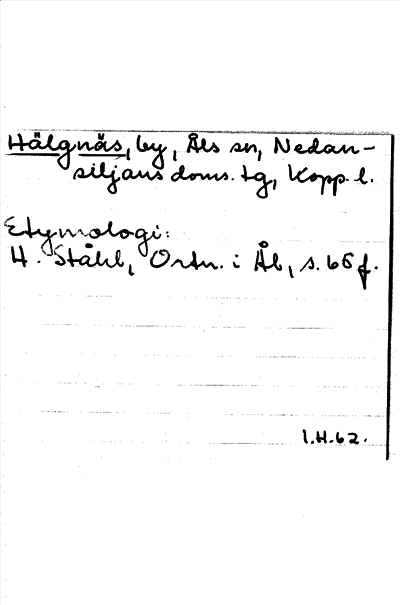 Hälgnäs, by, Åls sn, Nedan-
siljans doms. tg, Kopp. l.
Etymologi:
H. Ståhl, Ortn. i Ål, s. 66 f.
I.H.62.